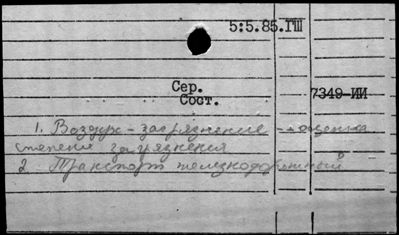 5:5.85.ГШ
Сер.
Сост.
7349-ИИ
1. Воздух - загрязнение - оценка
степени загрязнения
2. Транспорт железнодорожный